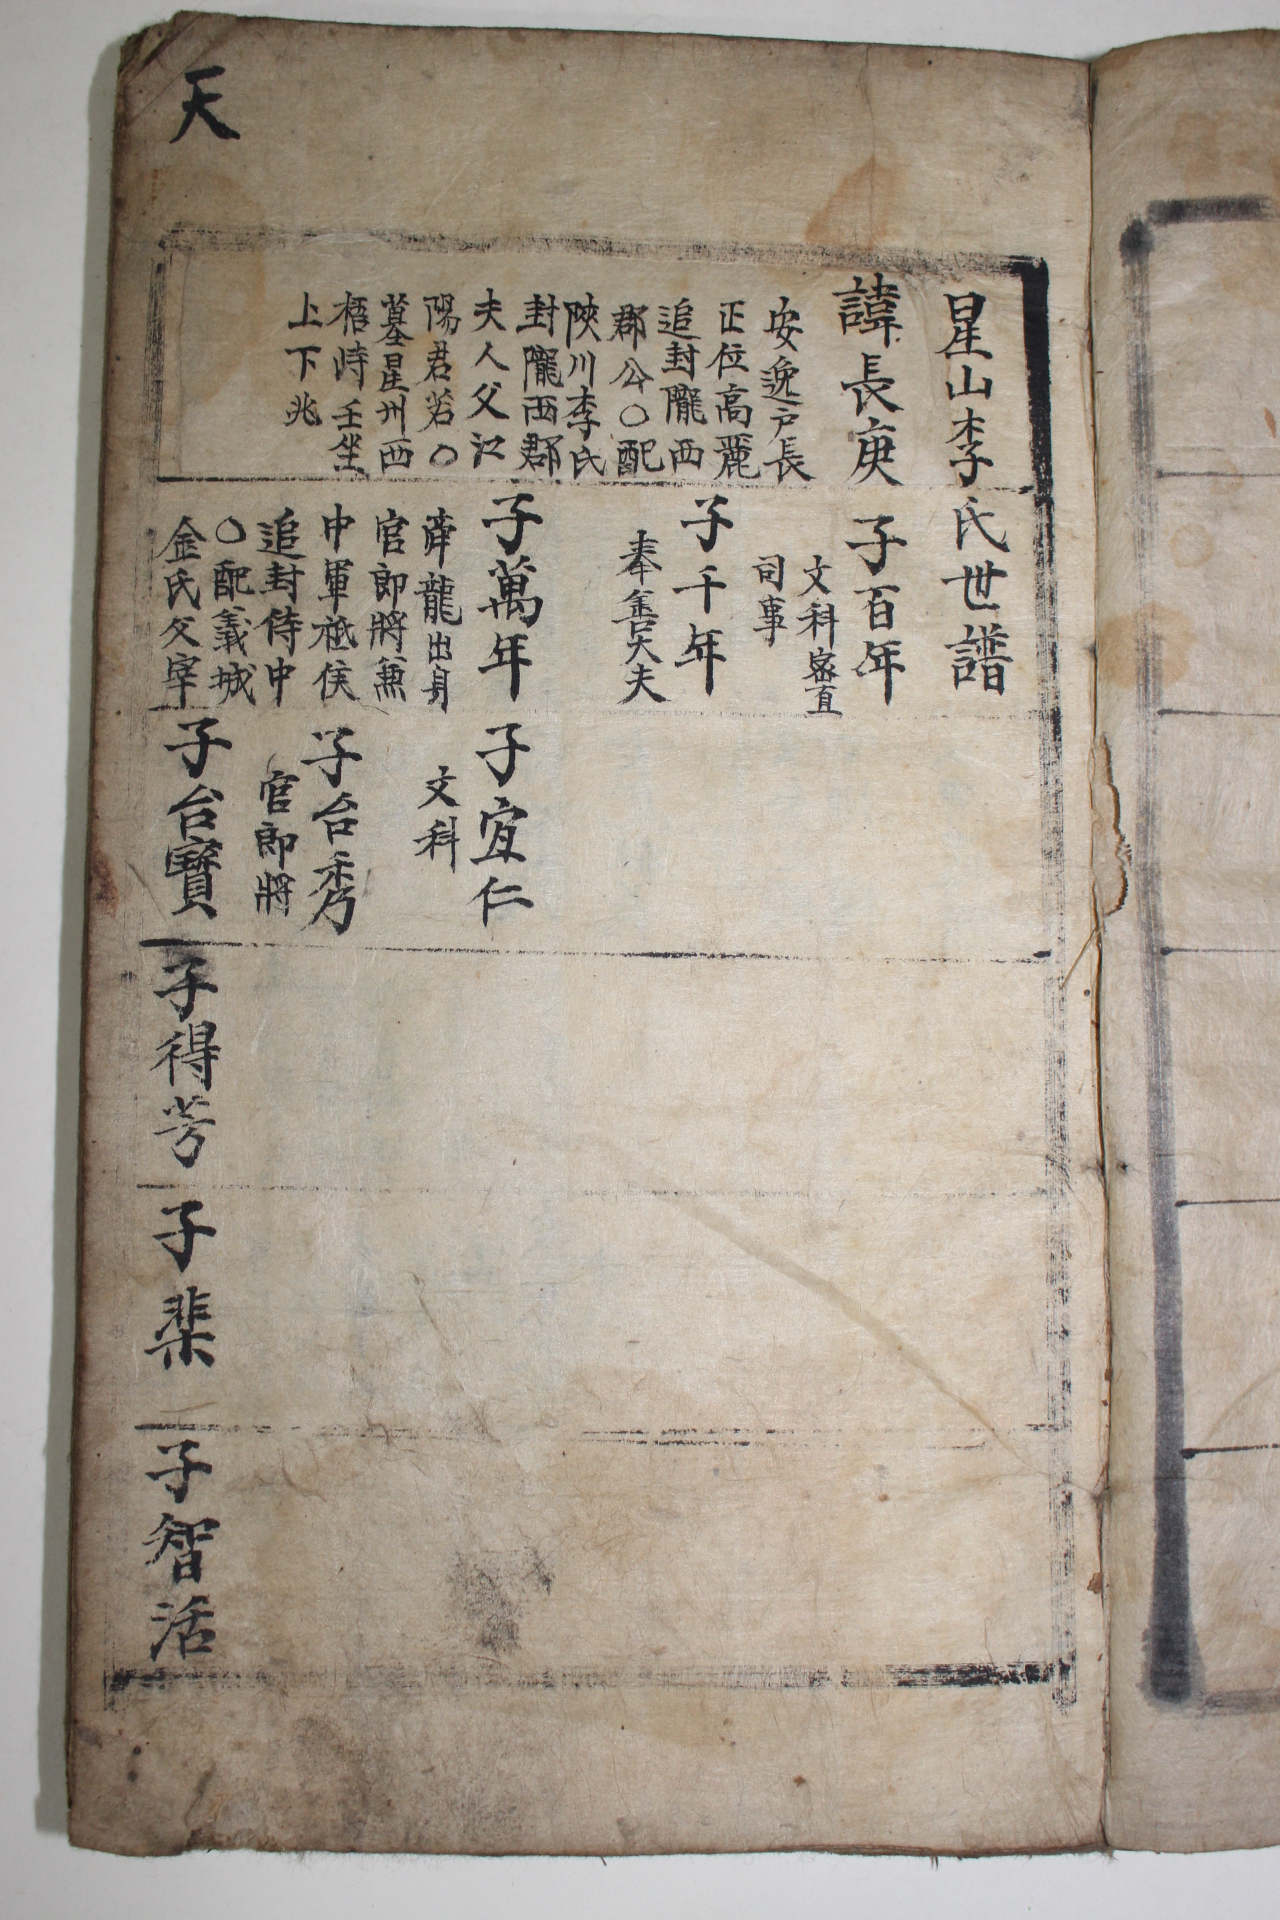 天
星山李氏世譜
諱長庚
安逸戶長
正位高麗
追封隴西
郡公○配
陜川李氏
封隴西郡
夫人父江
陽君若○
墓星州西
梧峙壬坐
上下兆
子百年
文科密直
司事
子千年
奉善大夫
子萬年
龍出身
官郎將兼
中軍祗侯
追封侍中
○配義城
金氏父宰
子宜仁
文科
子台秀
官郎將
子台寶
子得芳
子棐
子智活